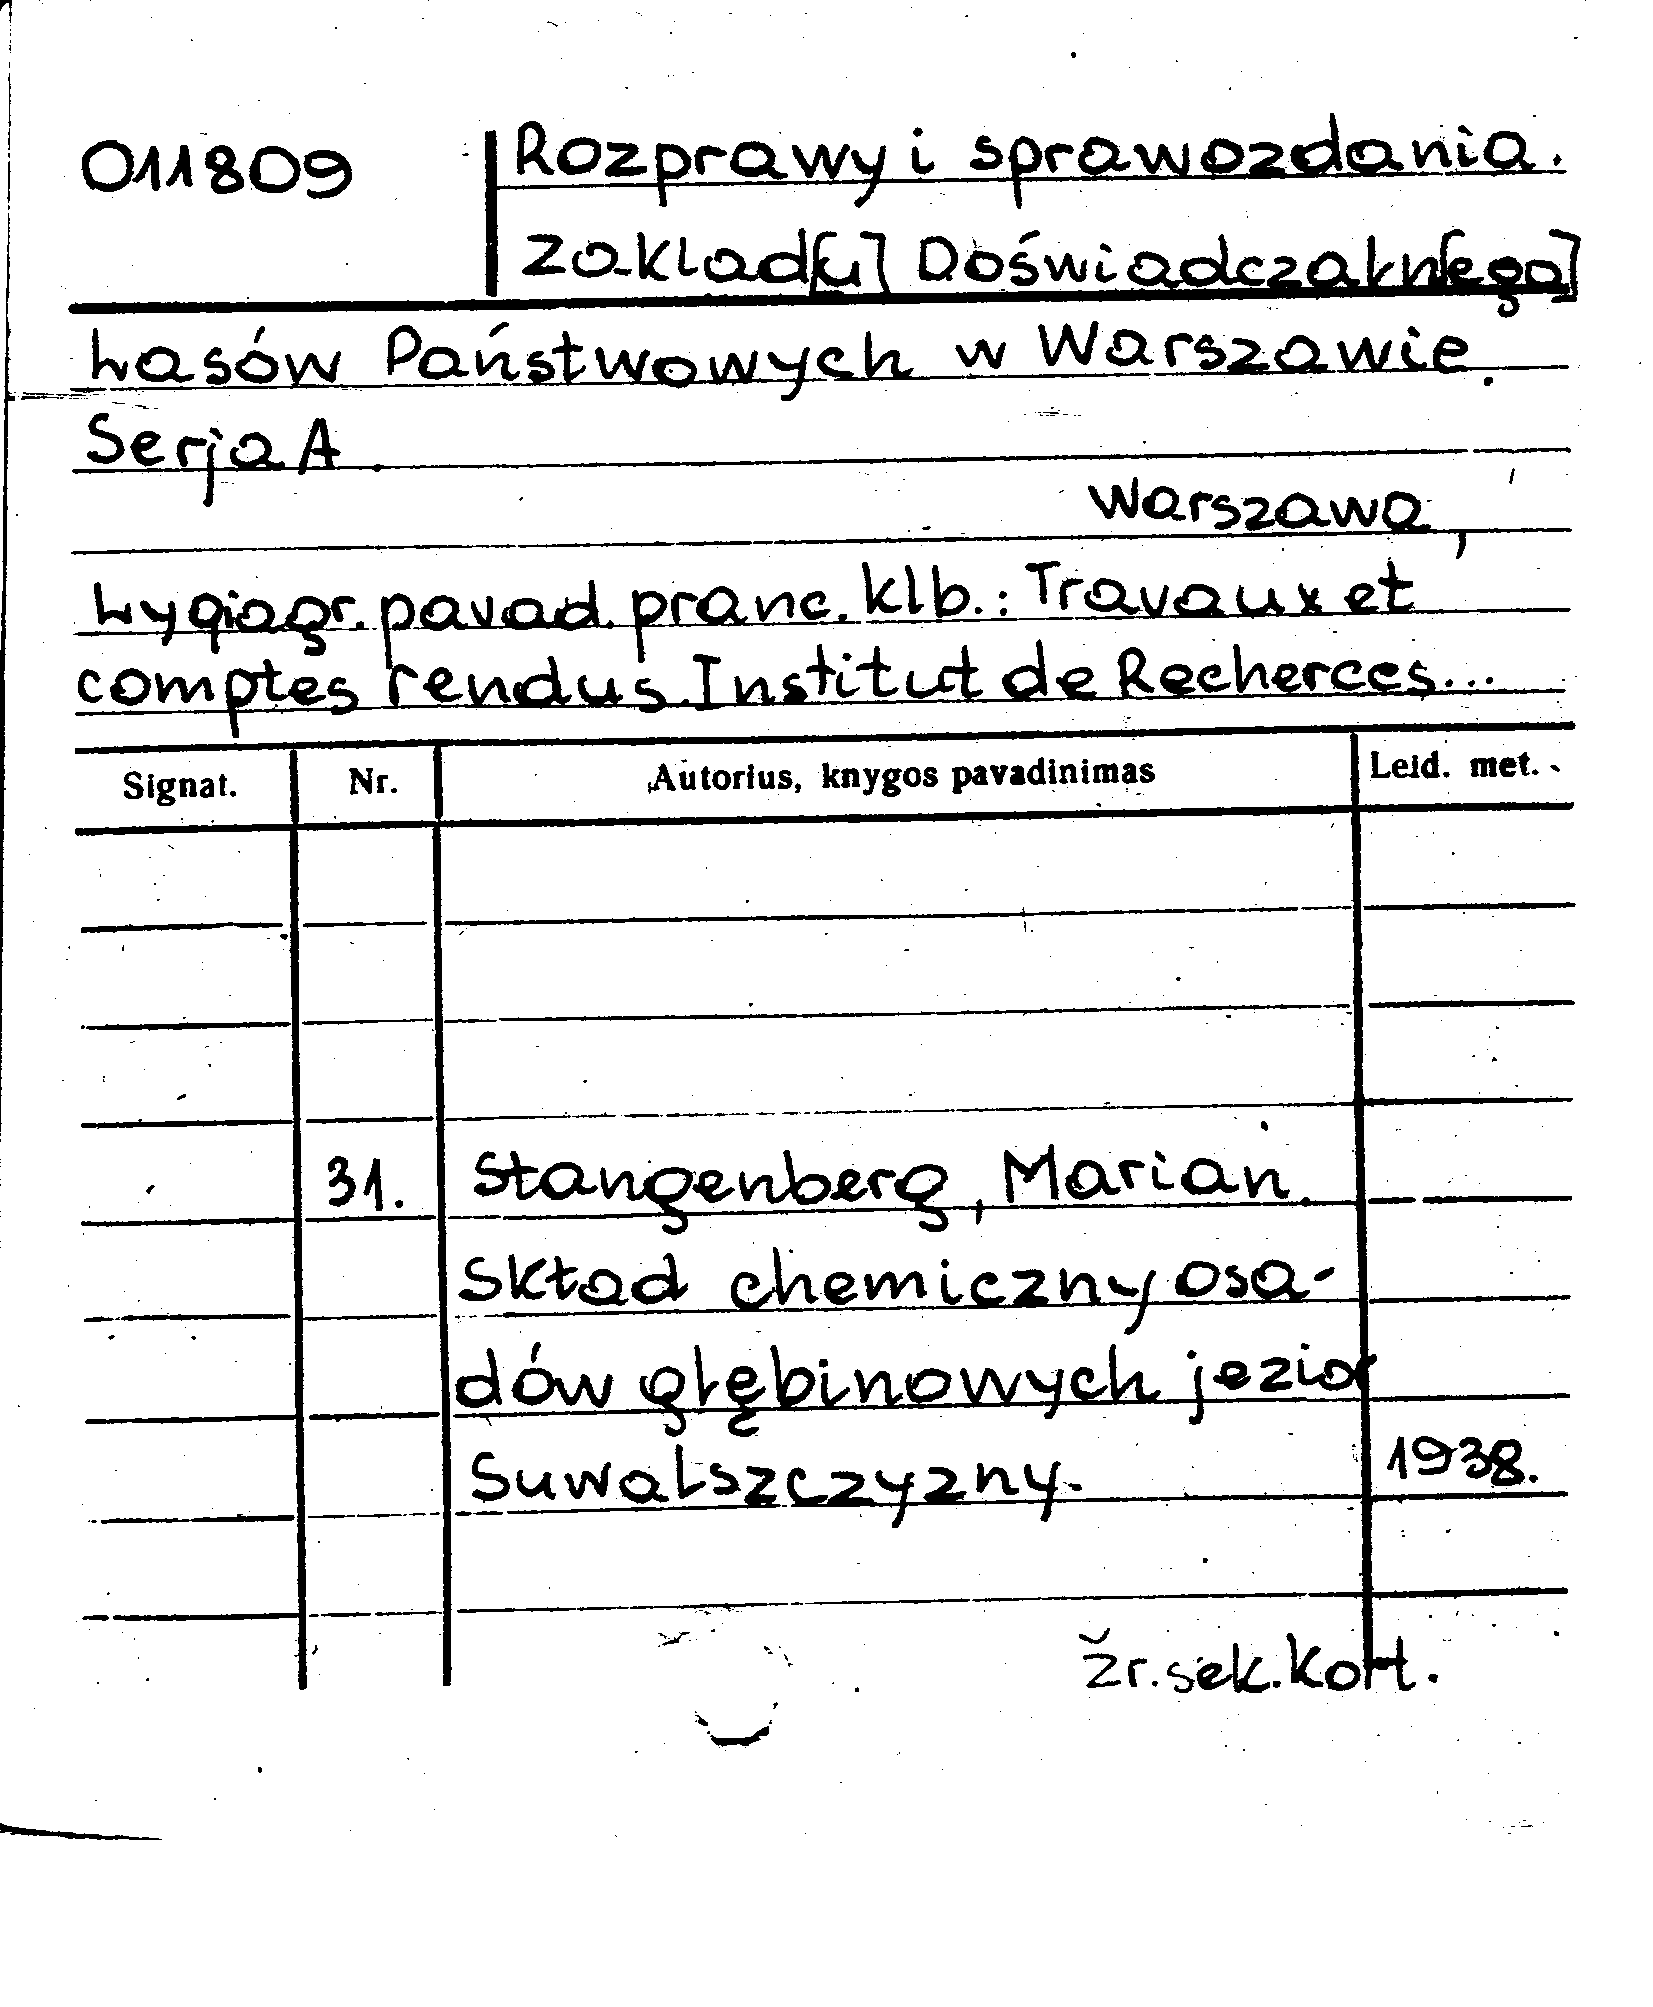 011809
Rozprawy i sprawozdania.
Zakład[u] Doświadczaln[ego]
Lasów Państwowych w Warszawie.
Serja A.
Warszawa,
Lygiagr. pavad. pranc. klb.: Travaux et
comptes rendus. Institut de Recherces...
Signat. Nr. Autorius, knygos pavadinimas Leid. met.
31. Stangenberg, Marian.
Skład chemiczny osa-
dów głębinowych jezior
Suwalszczyzny. 1938.
Žr. sek. kort.